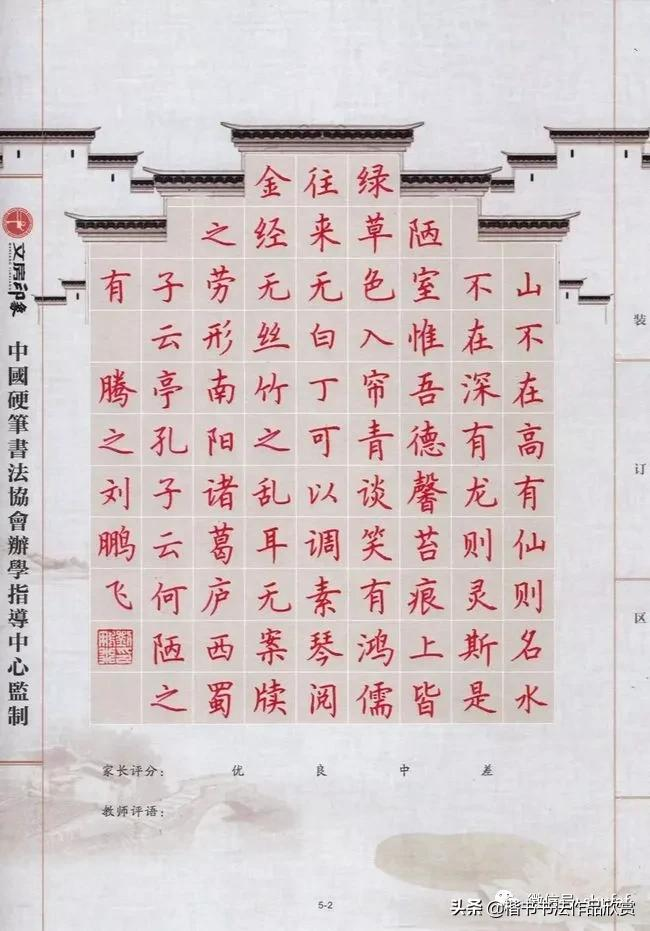 山不在高有仙则名水
不在深有龙则灵斯是
陋室惟吾德馨苔痕上皆
绿草色入帘青谈笑有鸿儒
往来无白丁可以调素琴阅
金经无丝竹之乱耳无案牍
之劳形南阳诸葛庐西蜀
子云亭孔子云何陋之
有 腾之刘鹏飞
文房印象
中國硬筆書法協會辦學指導中心監制
装 订 区
家长评分： 优 良 中 差
教师评语：
5-2
微信号
头条 @楷书书法作品欣赏